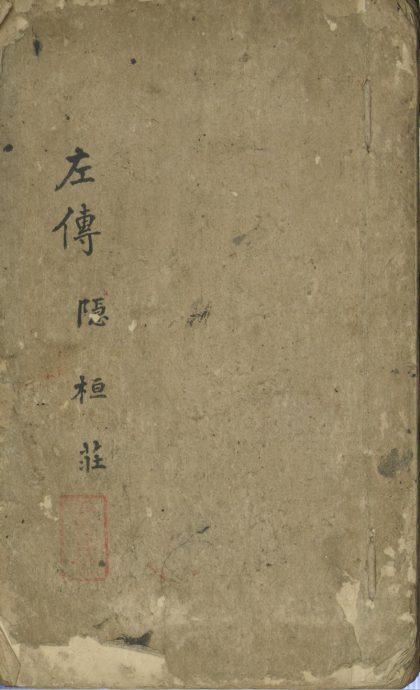 左傳 隠 桓 莊